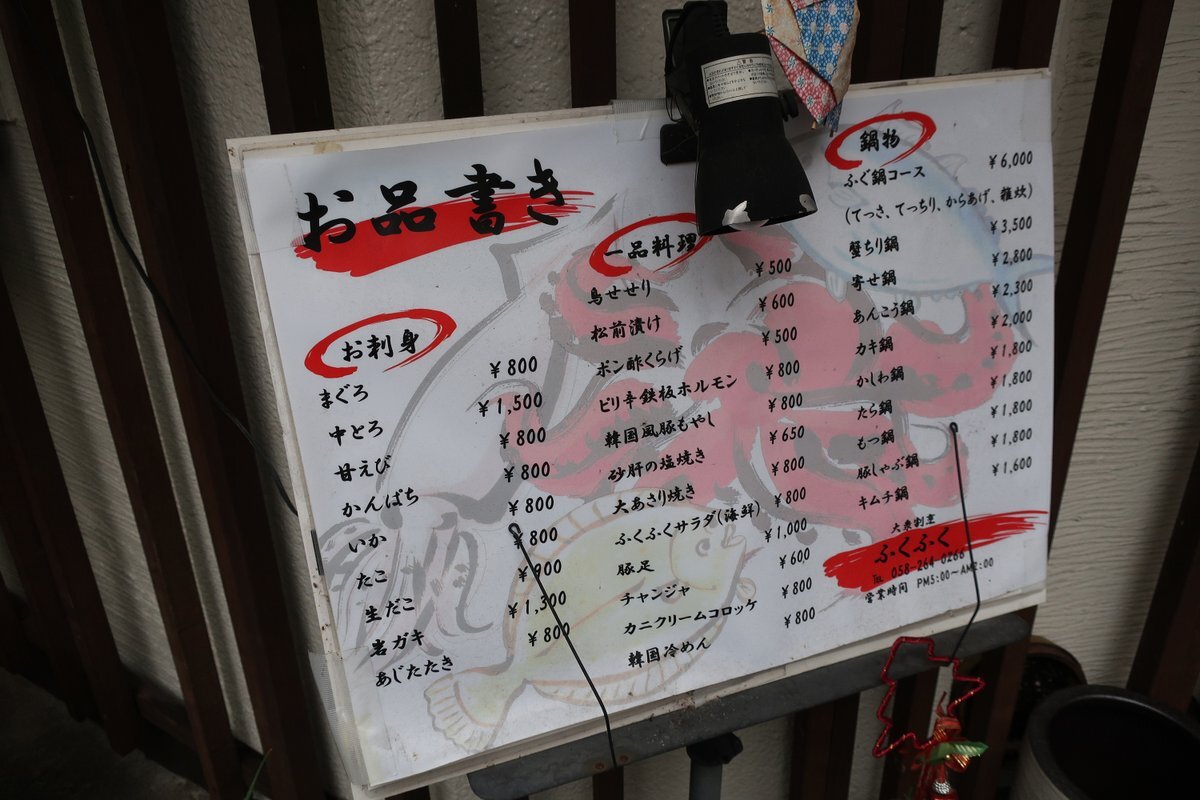 お品書き
お刺身
まぐろ ¥800
中とろ ¥1,500
甘えび ¥800
かんぱち ¥800
いか ¥800
たこ ¥800
生だこ
岩ガキ ¥1,300
あじたたき ¥800
一品料理
鳥せせり ¥500
松前漬け ¥600
ポン酢くらげ ¥500
ピリ辛鉄板ホルモン ¥800
韓国風豚もやし ¥800
砂肝の塩焼き ¥650
大あさり焼き ¥800
ふくふくサラダ(海鮮) ¥800
豚足 ¥1,000
チャンジャ ¥600
カニクリームコロッケ ¥800
韓国冷めん ¥800
鍋物
ふぐ鍋コース ¥6,000
(てっさ、てっちり、からあげ、雑炊)
蟹ちり鍋 ¥3,500
寄せ鍋 ¥2,800
あんこう鍋 ¥2,300
カキ鍋 ¥2,000
かしわ鍋 ¥1,800
たら鍋 ¥1,800
もつ鍋 ¥1,800
豚しゃぶ鍋 ¥1,800
キムチ鍋 ¥1,600
大衆割烹
ふくふく
℡ 058-264-0266
営業時間 PM5:00〜AM2:00